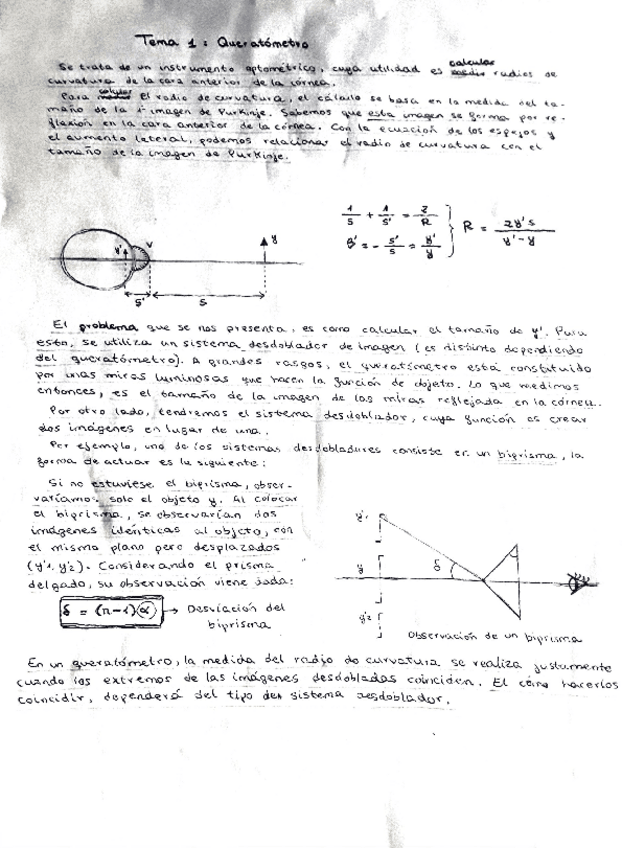 Tema 1: Queratómetro
Se trata de un instrumento optométrico, cuya utilidad es calcular radios de
curvatura de la cara anterior de la córnea.
Para calcular el radio de curvatura, el cálculo se basa en la medida del ta-
maño de la 1ª imagen de Purkinje. Sabemos que esta imagen se forma por re-
flexión en la cara anterior de la córnea. Con la ecuación de los espejos y
el aumento lateral, podemos relacionar el radio de curvatura con el
tamaño de la imagen de Purkinje.
1/s + 1/s' = 2/R
β' = - s'/s = y'/y
R = 2y's / y'-y
y' V y
s' s
El problema que se nos presenta, es como calcular el tamaño de y'. Para
esto, se utiliza un sistema desdoblador de imagen (es distinto dependiendo
del queratómetro). A grandes rasgos, el queratómetro está constituido
por unas miras luminosas que hacen la función de objeto. Lo que medimos
entonces, es el tamaño de la imagen de las miras reflejada en la córnea.
Por otro lado, tendremos el sistema desdoblador, cuya función es crear
dos imágenes en lugar de una.
Por ejemplo, uno de los sistemas desdobladores consiste en un biprisma, la
forma de actuar es la siguiente:
Si no estuviese el biprisma, obser-
varíamos solo el objeto y. Al colocar
el biprisma, se observarían dos
imágenes idénticas al objeto, con
el mismo plano pero desplazados
(y'1, y'2). Considerando el prisma
delgado, su observación viene dada:
δ = (n-1)α → Desviación del
biprisma
y'1
y
δ
y'2
Observación de un biprisma
En un queratómetro, la medida del radio de curvatura se realiza justamente
cuando los extremos de las imágenes desdobladas coinciden. El cómo hacerlos
coincidir, dependerá del tipo de sistema desdoblador.